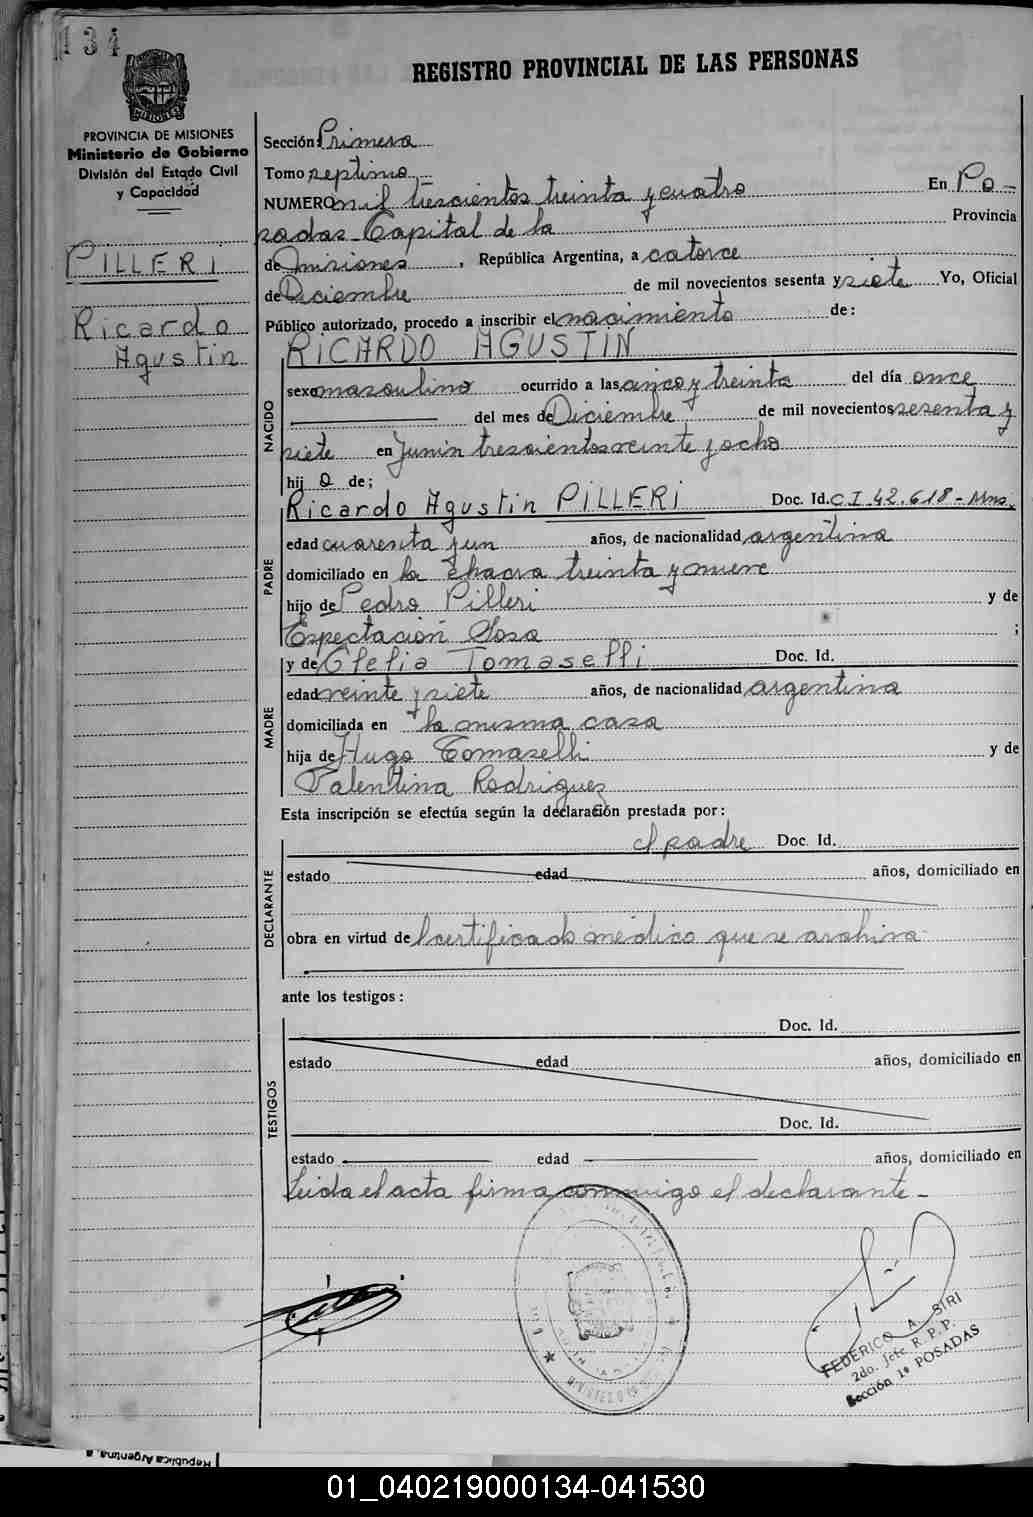 134
REGISTRO PROVINCIAL DE LAS PERSONAS
PROVINCIA DE MISIONES
Ministerio de Gobierno
División del Estado Civil
y Capacidad
PILLERI
Ricardo
Agustin
Sección Primera
Tomo septimo
NUMERO mil trescientos treinta y cuatro En Po-
sadas Capital de la Provincia
de Misiones, República Argentina, a catorce
de Diciembre de mil novecientos sesenta y siete Yo, Oficial
Público autorizado, procedo a inscribir el nacimiento de:
RICARDO AGUSTIN
NACIDO
sexo masculino ocurrido a las cinco y treinta del día once
del mes de Diciembre de mil novecientos sesenta y
siete en Junin trescientos veinte y ocho
hij o de;
PADRE
Ricardo Agustin PILLERI Doc. Id. C.I. 42.618 - Mns.
edad cuarenta y un años, de nacionalidad argentina
domiciliado en la chacra treinta y nueve
hijo de Pedro Pilleri y de
Espectación Sosa ;
MADRE
y de Clelia Tomaselli Doc. Id.
edad veinte y siete años, de nacionalidad argentina
domiciliada en la misma casa
hija de Hugo Tomaselli y de
Valentina Rodrigues
Esta inscripción se efectúa según la declaración prestada por:
DECLARANTE
el padre Doc. Id.
estado edad años, domiciliado en
obra en virtud del certificado médico que se archiva
ante los testigos:
TESTIGOS
Doc. Id.
estado edad años, domiciliado en
Doc. Id.
estado edad años, domiciliado en
Leida el acta firma conmigo el declarante -
FEDERICO A. SIRI
2do. Jefe R. P. P.
Sección 1ª POSADAS
República Argentina, a
01_040219000134-041530